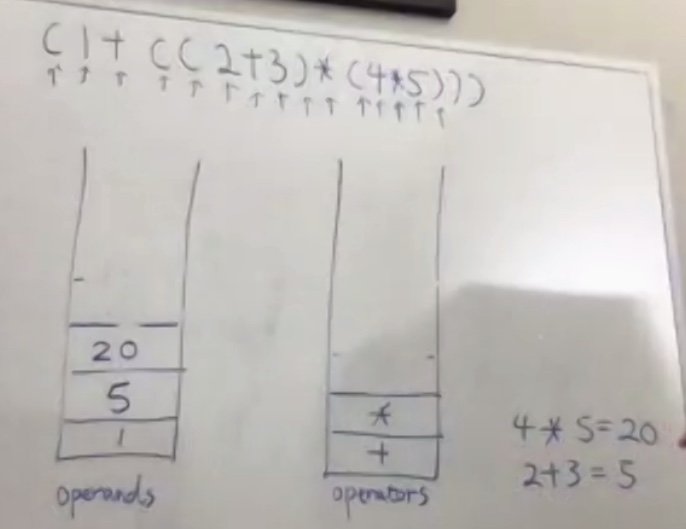 (1+((2+3)*(4*5)))
20
5
1
operands
*
+
operators
4*5=20
2+3=5